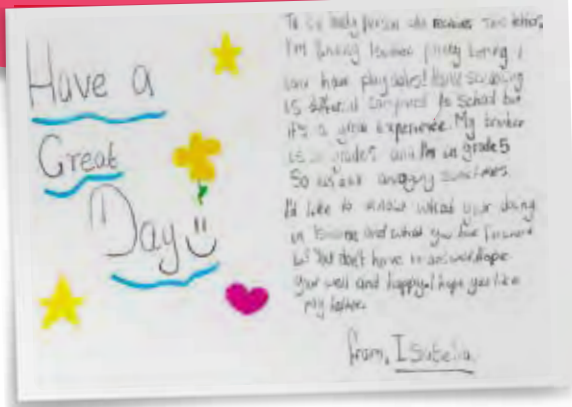 Have a
Great
Day
To the lucky person who receives this letter,
I'm finding pretty boring I
have playdates! Home schooling
is different compared to school but
it's a great experience. My brother
is in grade and I'm in grade 5
So annoying sometimes.
I'd like to know what your doing
in and what you forward
to! You don't have to answer. Hope
your well and happy. I hope you like
my letter.
from, Isabella